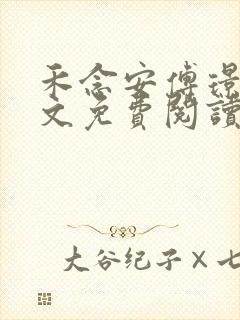 禾念安傅璟
文免費閱讀
大谷纪子×七